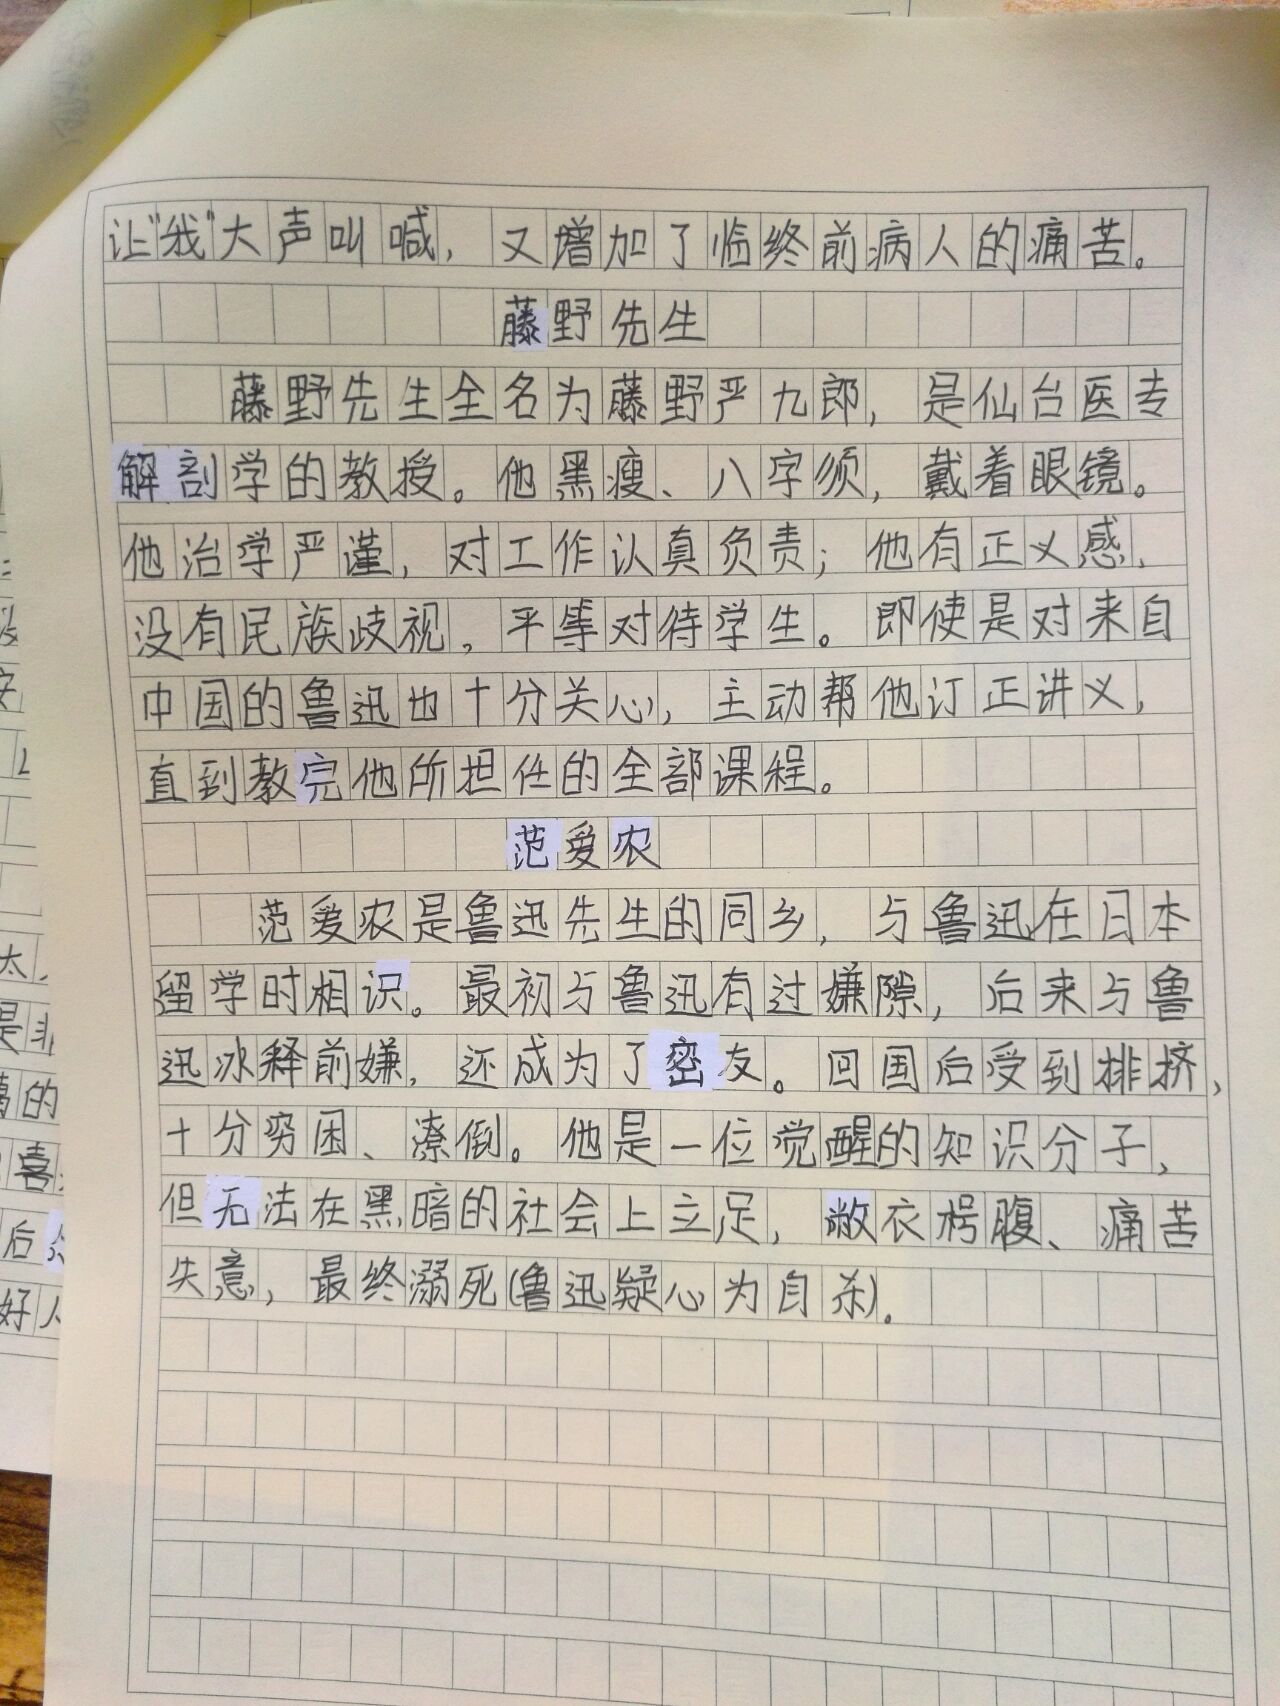 让“我”大声叫喊，又增加了临终前病人的痛苦。
藤野先生
藤野先生全名为藤野严九郎，是仙台医专
解剖学的教授。他黑瘦、八字须，戴着眼镜。
他治学严谨，对工作认真负责；他有正义感，
没有民族歧视，平等对待学生。即使是对来自
中国的鲁迅也十分关心，主动帮他订正讲义，
直到教完他所担任的全部课程。
范爱农
范爱农是鲁迅先生的同乡，与鲁迅在日本
留学时相识。最初与鲁迅有过嫌隙，后来与鲁
迅冰释前嫌，还成为了密友。回国后受到排挤，
十分穷困、潦倒。他是一位觉醒的知识分子，
但无法在黑暗的社会上立足，敝衣枵腹、痛苦
失意，最终溺死（鲁迅疑心为自杀）。
太，
是非
的
喜
后
好人